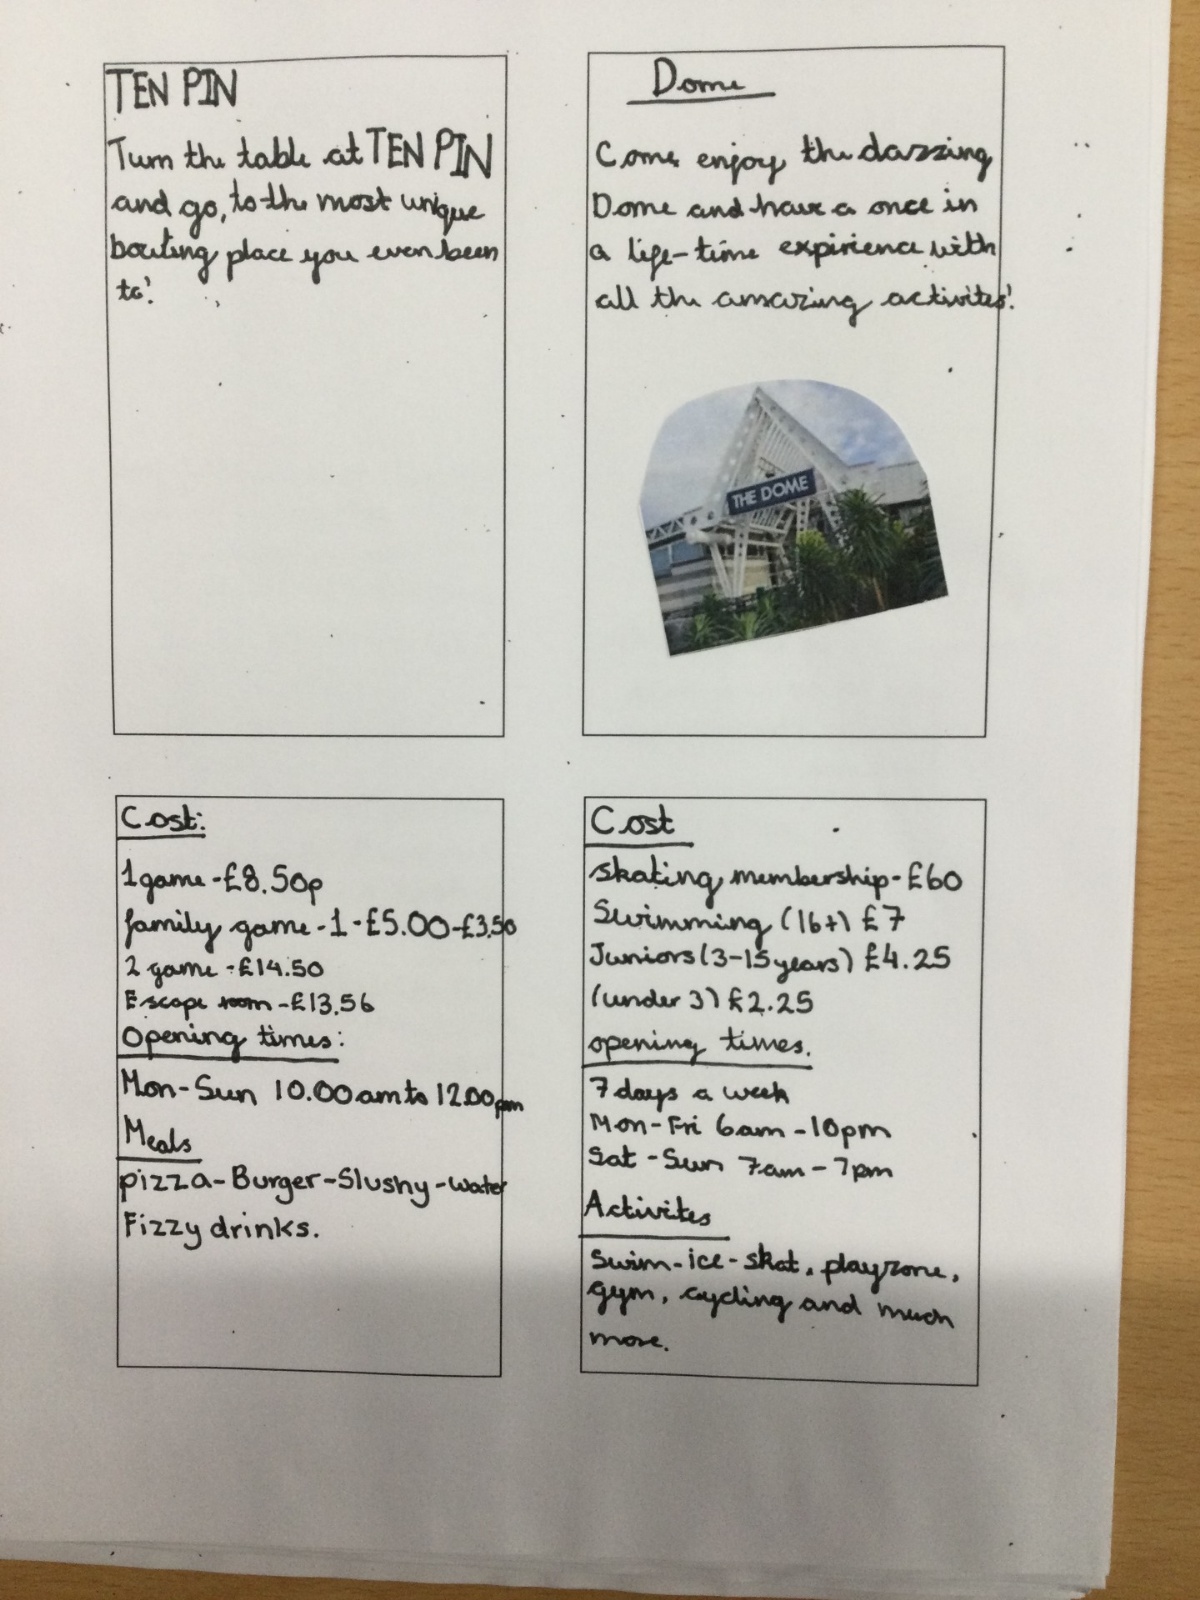 TEN PIN
Turn the table at TEN PIN
and go, to the most unique
bouling place you even been
to!
Dome
Come enjoy the dazzing
Dome and have a once in
a life-time expirience with
all the amazing activites!
THE DOME
Cost:
1 game - £8.50p
family game - 1 - £5.00 - £3.50
2 game - £14.50
Escape room - £13.56
Opening times:
Mon-Sun 10.00am to 12.00pm
Meals
pizza - Burger - Slushy - water
Fizzy drinks.
Cost
skating membership - £60
Swimming (16+) £7
Juniors (3-15 years) £4.25
(under 3) £2.25
opening times.
7 days a week
Mon-Fri 6am - 10pm
Sat - Sun 7am - 7pm
Activites
Swim - ice - skat, playzone,
gym, cycling and much
more.